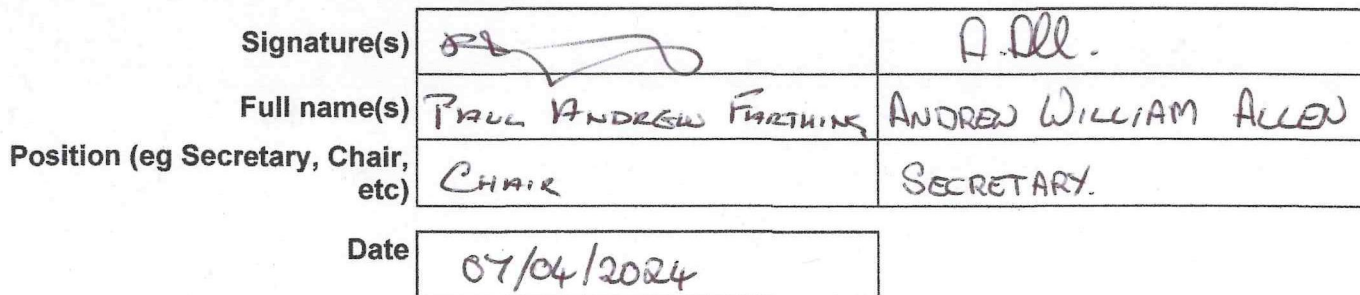 Signature(s) A.All.
Full name(s) PAUL ANDREW FARTHING ANDREW WILLIAM ALLEN
Position (eg Secretary, Chair,
etc) CHAIR SECRETARY.
Date 07/04/2024